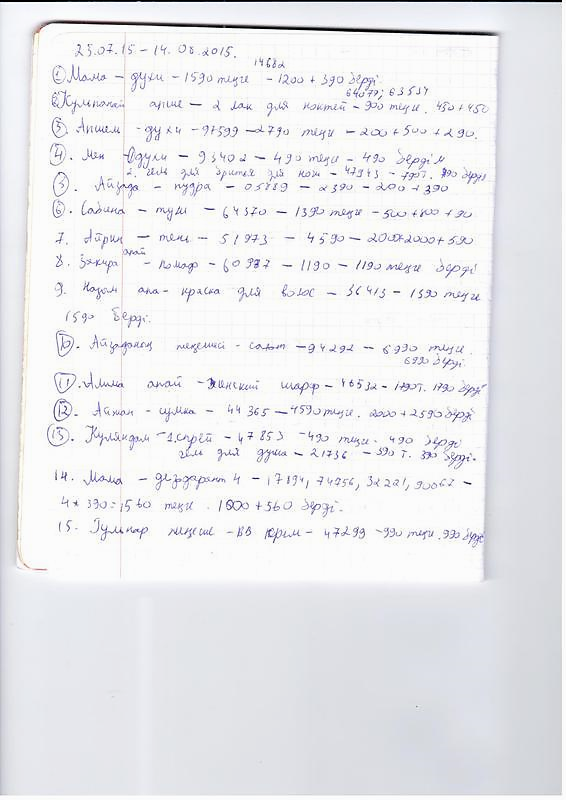 25.07.15 – 14.08.2015.
14682
① Мама – духи – 1590 теңге – 1200 + 390 берді.
64077; 63534
апше – 2 лак для ногтей – 900 теңге. 450 + 450
③ Апшем – духи – 97599 – 2790 теңге – 200 + 500 + 290.
④. Мен – духи – 93402 – 490 теңге – 490 бердім
2. гель для бритья для ног – 47943 – 790т. 790 берді
⑤. Айзада – пудра – 05789 – 2390 – 200 + 390
⑥. Сабина – тушь – 64370 – 1390 теңге – 500 + 800 + 90.
7. – тени – 51973 – 4590 – 2000 + 2000 + 590
8. Зәкира апай – помад – 60937 – 1190 – 1190 теңге берді
9. Назым апа – краска для волос – 36413 – 1590 теңге
1590 берді.
⑩. Айзаданың – 94292 – 6990 теңге.
6990 берді.
⑪. Алима апай – женский шарф – 46532 – 1790т. 1790 берді
⑫. Айжан – сумка – 44365 – 4590 теңге. 2000 + 2590 берді
⑬. Куляндам – 1. спрей – 47853 – 490 теңге. 490 берді
гель для душа – 21736 – 390 т. 390 берді.
14. Мама – дезодарант 4 – 17894, 74956, 32221, 90062 –
4 * 390 = 1560 теңге. 1000 + 560 берді.
15. Гульнар – ВВ крем – 47299 – 990 теңге. 990 берді